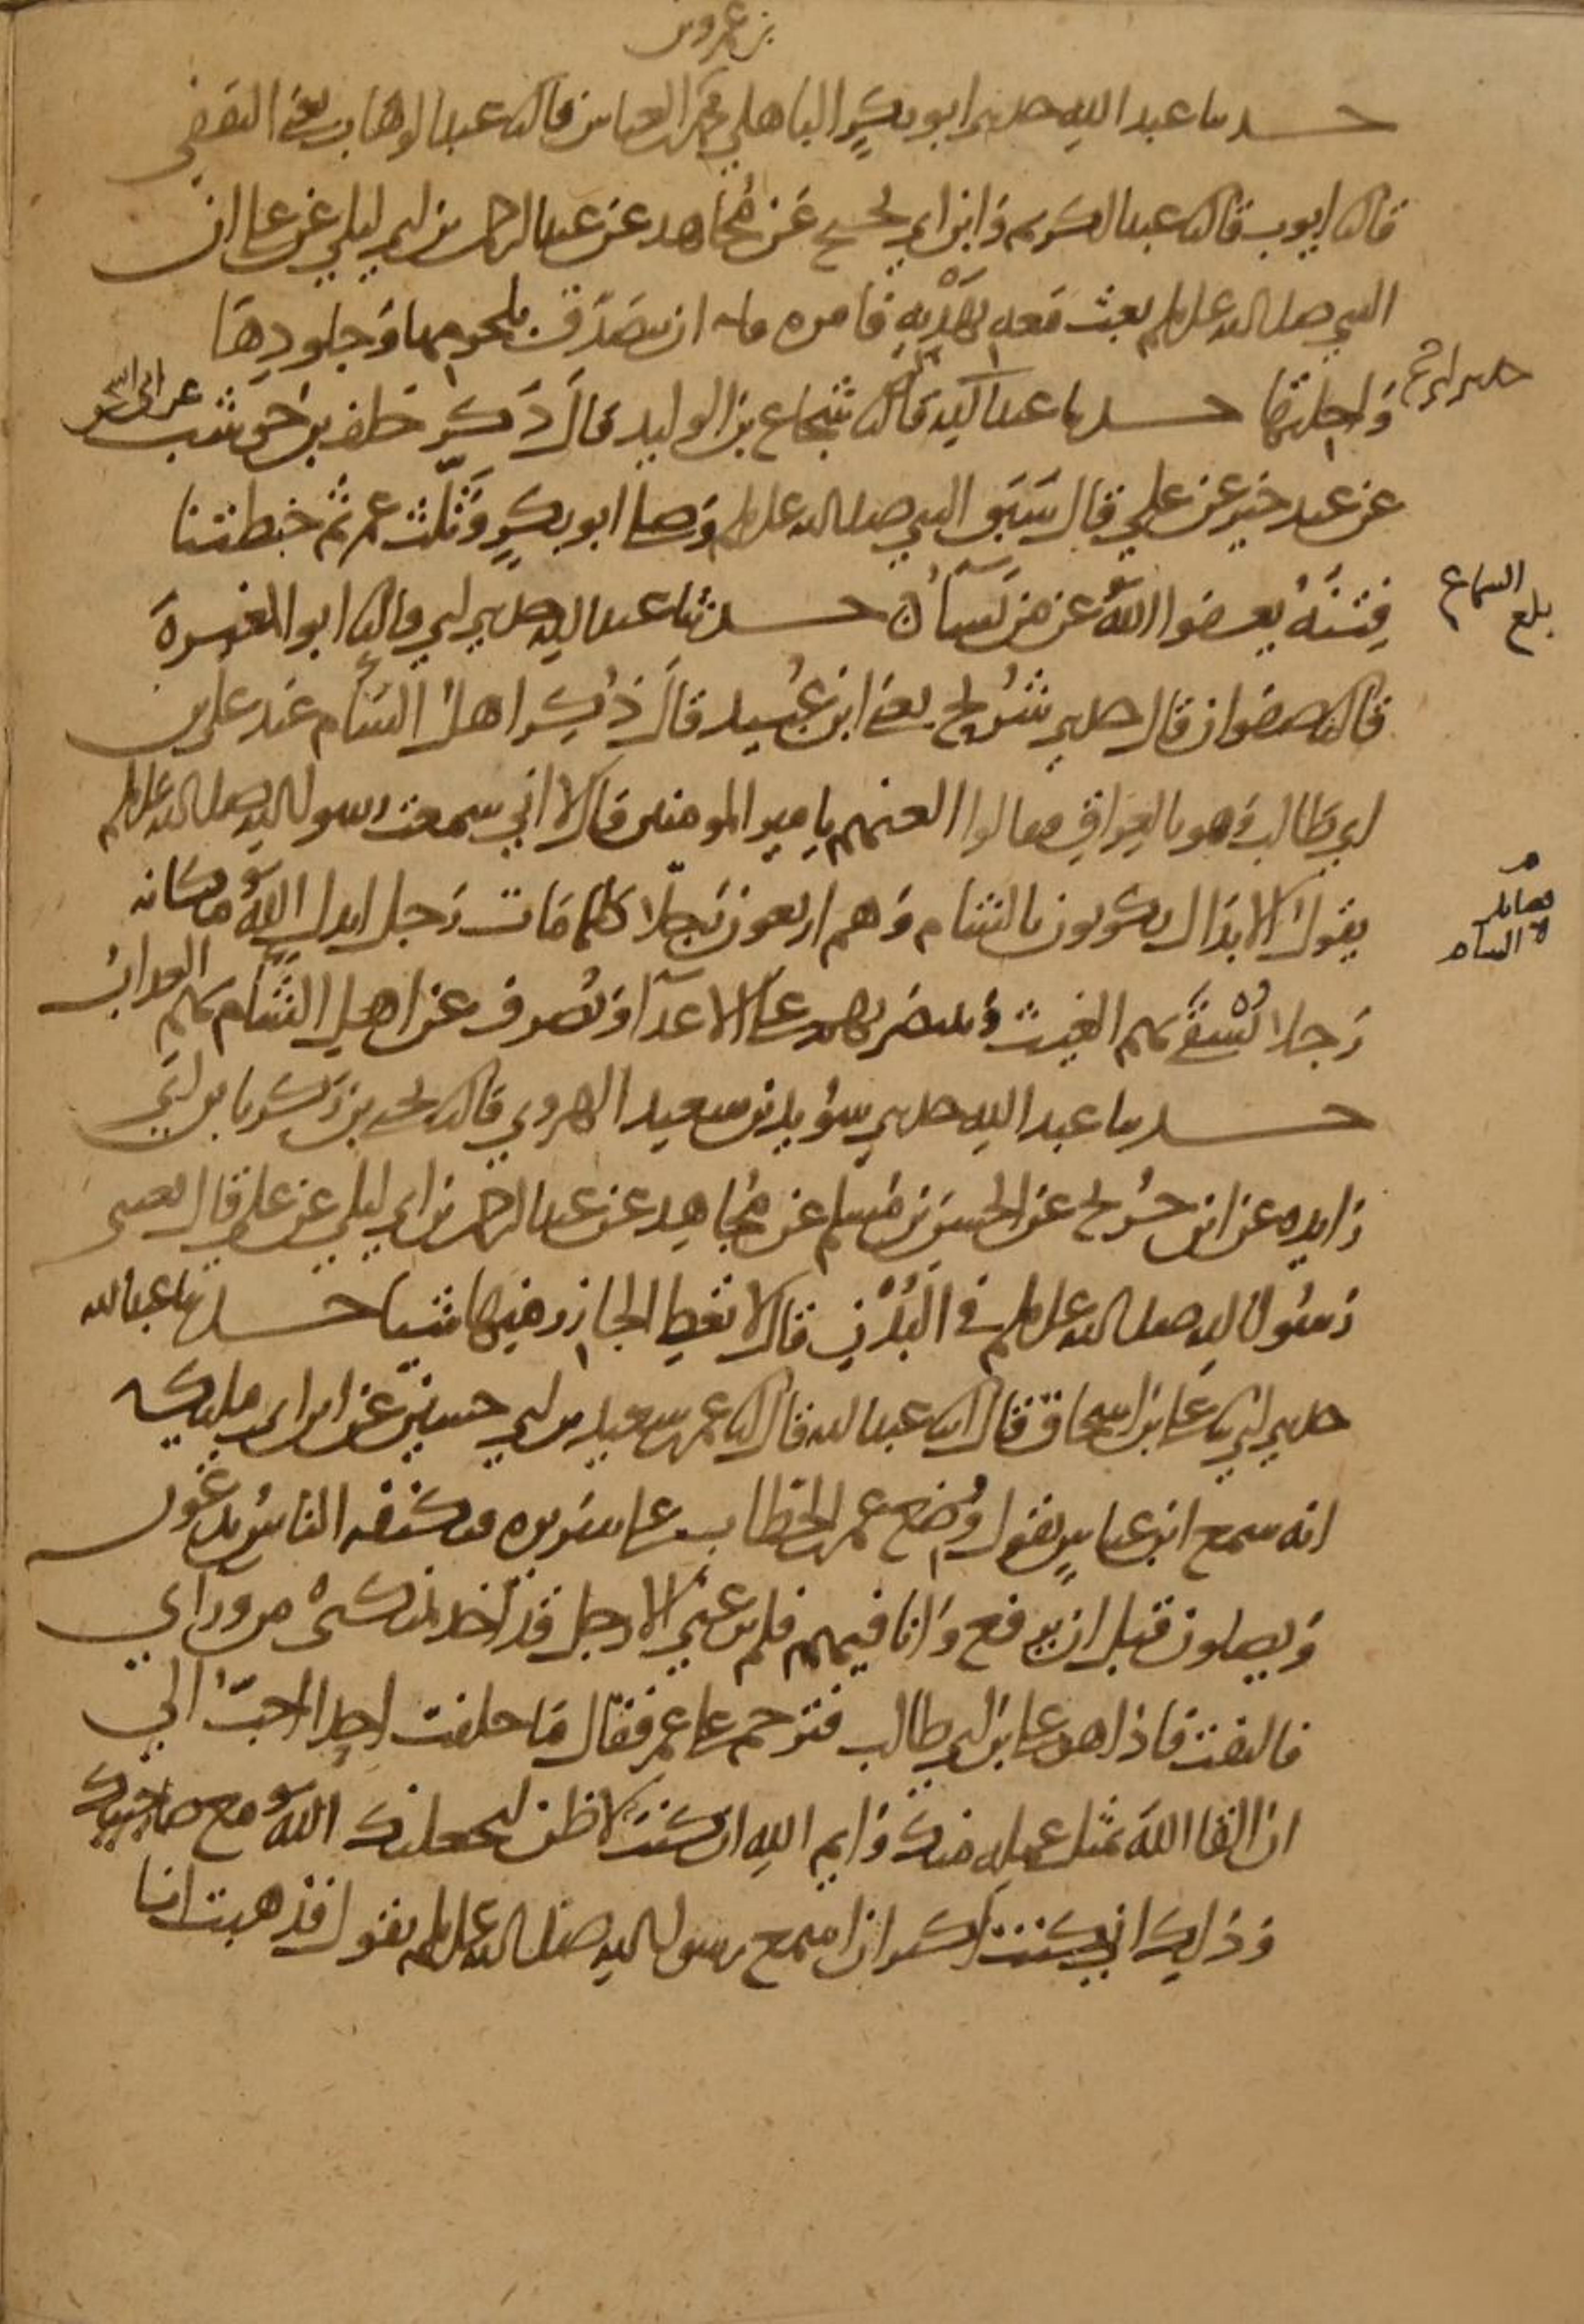 بن عمرو بن
حدثنا عبد الله حدثني ابو بكر الباهلي محمد بن العباس قال ثنا عبد الوهاب يعني الثقفي
قال ثنا ايوب قال ثنا عبد الكريم وابن ابي نجيح عن مجاهد عن عبد الرحمن بن ابي ليلى عن علي ان
النبي صلى الله عليه وسلم بعث معه بهديه فامره ان يتصدق بلحومها وجلودها
واجلتها حدثنا عبد الله قال ثنا شجاع بن الوليد قال ذكر خلف بن حوشب عن ابي اسحق
حدثني ابي ثنا
عن عبد خير عن علي قال سبق النبي صلى الله عليه وسلم وصلى ابو بكر وثلث عمر ثم خبطتنا
فتنة يعفوا الله عن من يشاء حدثنا عبد الله حدثني ابي قال ثنا ابو المغيرة
بلغ السماع
قال ثنا صفوان قال حدثني شريح يعني ابن عبيد قال ذكر اهل الشام عند علي بن
ابي طالب وهو بالعراق فقالوا العنهم يا امير المومنين قال لا اني سمعت رسول الله صلى الله عليه وسلم
يقول الابدال يكونون بالشام وهم اربعون رجلا كلما مات رجل ابدل الله مكانه
فضايل
الشام
رجلا تسقى بهم الغيث وينتصر بهم على الاعدا وتصرف عن اهل الشام بهم العذاب
حدثنا عبد الله حدثني سويد بن سعيد الهروي قال ثنا يحيى بن زكريا بن ابي
زايده عن ابن جريج عن الحسن بن مسلم عن مجاهد عن عبد الرحمن بن ابي ليلى عن علي قال بعثني
رسول الله صلى الله عليه وسلم في البدن قال لا تعطي الجازر منها شيا حدثنا عبد الله
حدثني ابي ثنا علي بن اسحاق قال انا عبد الله قال انا عمر بن سعيد بن ابي حسين عن ابن ابي مليكة
انه سمع ابن عباس يقول وضع عمر بن الخطاب على سريره فتكنفه الناس يدعون
ويصلون قبل ان يرفع وانا فيهم فلم يرعني الا رجل قد اخذ بمنكبي من وراي
فالتفت فاذا هو علي بن ابي طالب فترحم على عمر فقال ما خلفت احدا احب الي
ان القا الله بمثل عمله منك وايم الله ان كنت لاظن ليجعلنك الله مع صاحبيك
وذلك اني كنت اكثر ان اسمع رسول الله صلى الله عليه وسلم يقول فذهبت انا